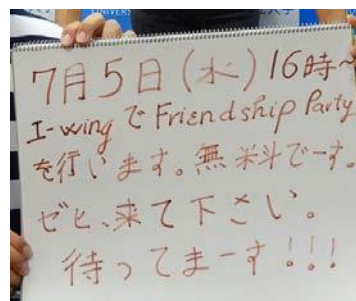 7月5日(水)16時~
I-wingでFriendship Party
を行います。無料でーす。
ゼヒ、来て下さい。
待ってまーす!!!